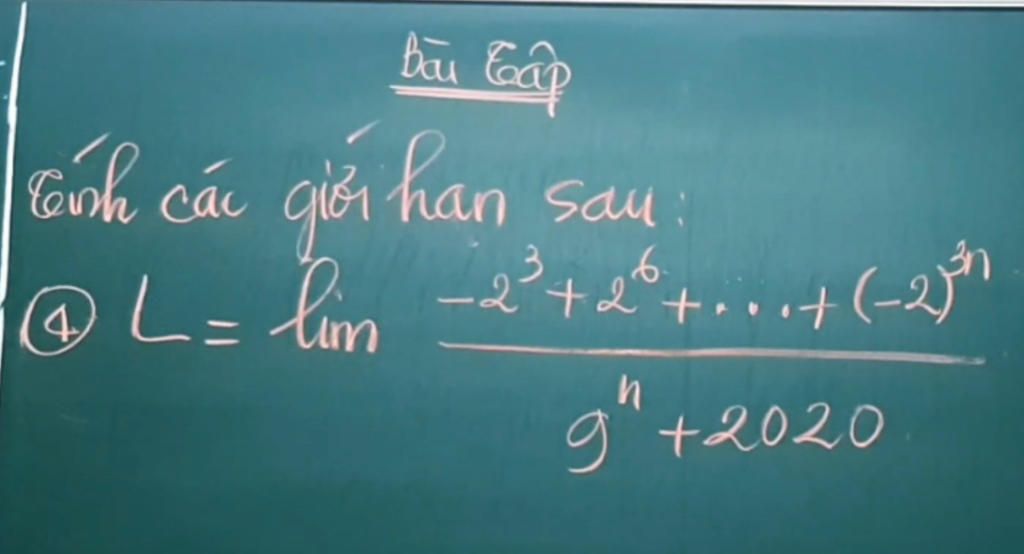 Bài Tập
Tính các giới han sau:
④ L = lim \frac{-2^3+2^6+...+(-2)^{3n}}{9^n+2020}